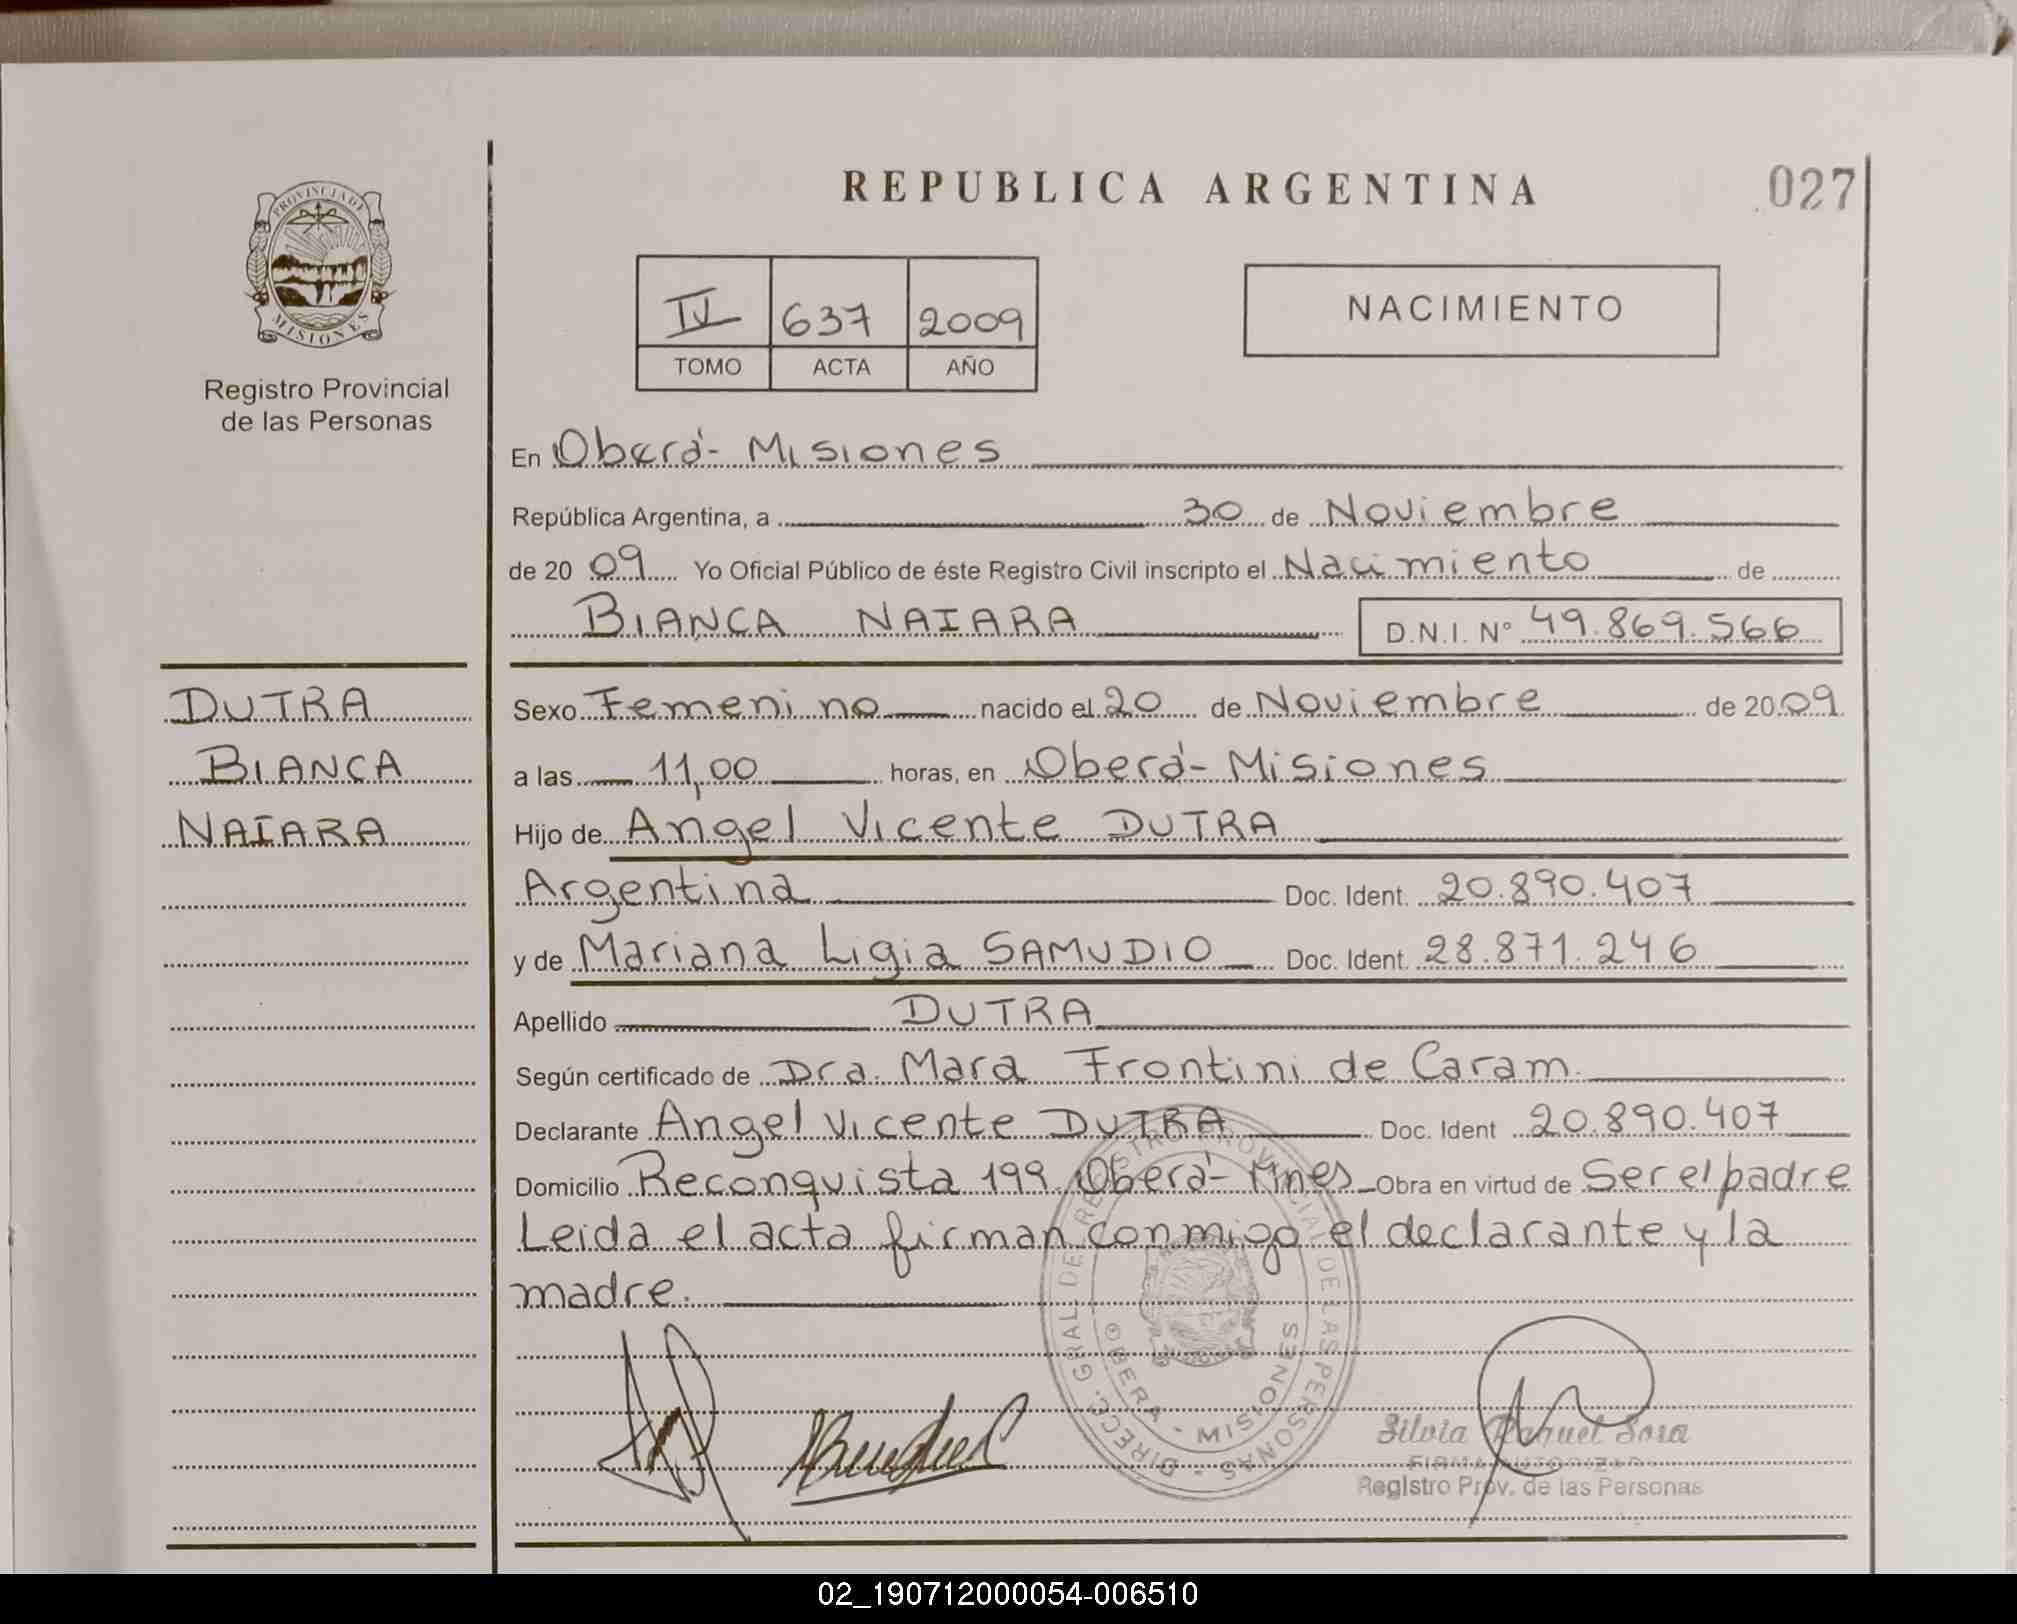 REPUBLICA ARGENTINA
027
PROVINCIA DE
MISIONES
Registro Provincial
de las Personas
IV 637 2009
TOMO ACTA AÑO
NACIMIENTO
En Oberá - Misiones
República Argentina, a 30 de Noviembre
de 20 09 Yo Oficial Público de éste Registro Civil inscripto el Nacimiento de
BIANCA NAIARA D.N.I. Nº 49.869.566
DUTRA
BIANCA
NAIARA
Sexo Femenino nacido el 20 de Noviembre de 20 09
a las 11,00 horas, en Oberá - Misiones
Hijo de Angel Vicente DUTRA
Argentina Doc. Ident. 20.890.407
y de Mariana Ligia SAMUDIO Doc. Ident. 28.871.246
Apellido DUTRA
Según certificado de Dra. Mara Frontini de Caram.
Declarante Angel Vicente DUTRA Doc. Ident 20.890.407
Domicilio Reconquista 199 Oberá - Mnes Obra en virtud de Ser el padre
Leida el acta firman conmigo el declarante y la
madre.
DIRECC. GRAL. DE REGISTRO PROVINCIAL DE LAS PERSONAS
OBERA - MISIONES
Silvia Sosa
FIRMA AUTORIZADA
Registro Prov. de las Personas
02_190712000054-006510